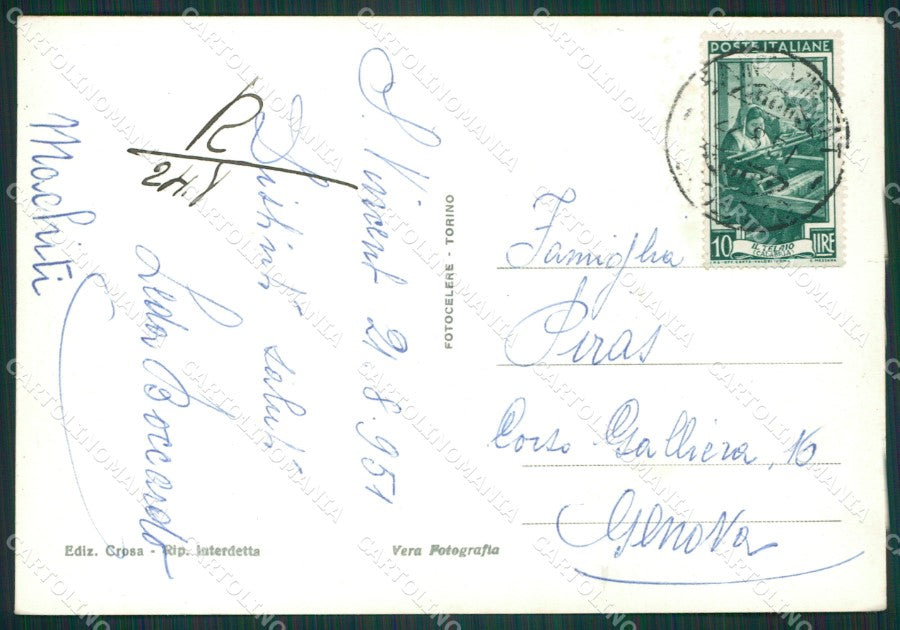 S. Vincent 21.8.951
Distinti saluti
Leda Boccardo
R
FOTOCELERE - TORINO
POSTE ITALIANE
10 LIRE
IL TELAIO
(CALABRIA)
Famiglia
Piras
Corso Galliera, 16
Genova
Ediz. Crosa - Rip. Interdetta
Vera Fotografia
CARTOLINOMANIA